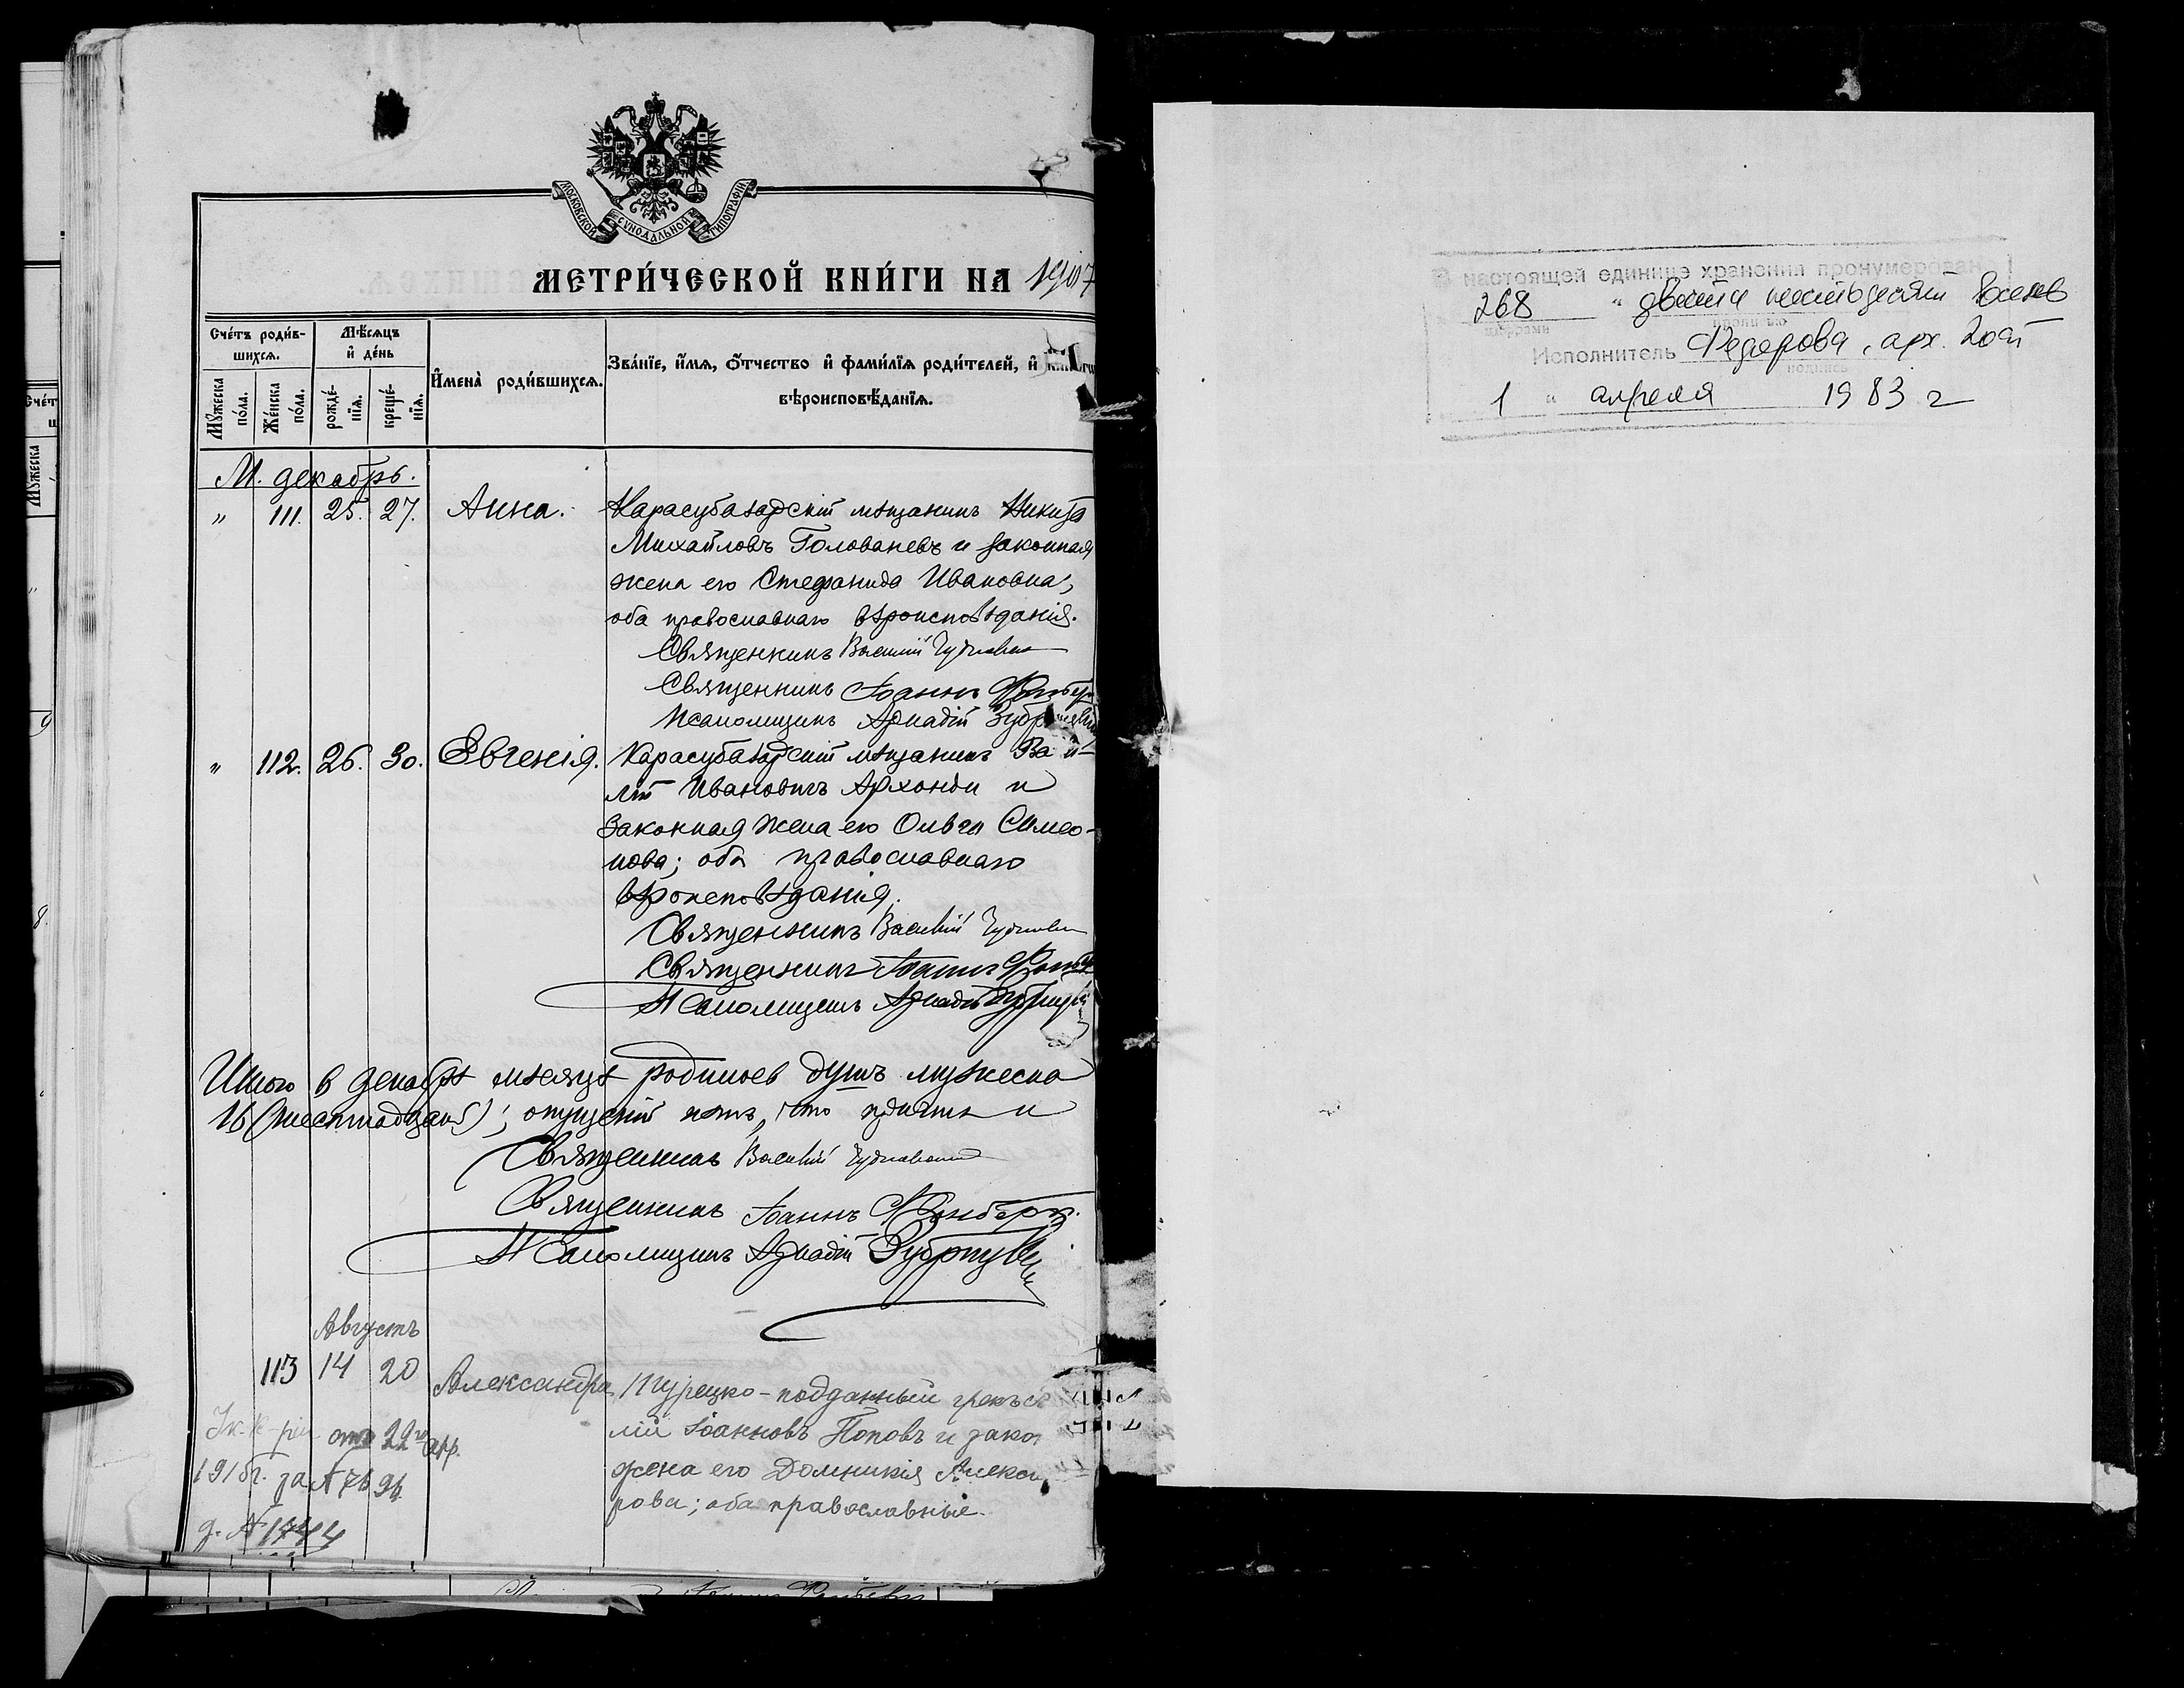 МОСКОВСКОЙ СѴНОДАЛЬНОЙ ТИПОГРАФІИ
МЕТРИ́ЧЕСКОЙ КНИ́ГИ НА 1907
Сче́тъ роди́в-
шихсѧ.
Мѣ́сѧцъ
и҆ де́нь
Мꙋ́жеска
по́ла.
Же́нска
по́ла.
рожде́-
нїѧ.
креще́-
нїѧ.
И҆мена̀ роди́вшихсѧ.
Зва́нїе, и҆́мѧ, ѻ҆́тчество и҆ фамѝлїѧ роди́телей, и҆
вѣроисповѣ́данїѧ.
М. декабрь.
" 111. 25. 27. Анна. Карасубазарскій мѣщанинъ Никита
Михайловъ Голованевъ и законная
жена его Стефанида Ивановна,
оба православнаго вѣроисповѣданія.
Священникъ Василій
Священникъ Іоаннъ
Псаломщикъ Аркадій
" 112. 26. 30. Евгенія. Карасубазарскій мѣщанинъ
лій Ивановичъ Архонди и
законная жена его Ольга Симео-
нова; оба православнаго
вѣроисповѣданія.
Священникъ Василій
Священникъ Іоаннъ
Псаломщикъ Аркадій
Итого в декабрѣ мѣсяцѣ родилось душъ мужеска
16 (шестнадцать); опущеній нѣтъ, что и
Священникъ Василій
Священникъ Іоаннъ
Псаломщикъ Аркадій
Августъ
113 14 20 Александра Турецко-подданный грекъ
лій Іоанновъ Поповъ и закон
жена его Домникія Алексан
рова; оба православные.
отъ 22го апр.
191 г. за № 7696
д. № 1744
В настоящей единице хранения пронумерован
268 " двести шестьдесят восемь
цифрами прописью
Исполнитель Федорова, арх. 20ап
подпись
1 " апреля 1983 г